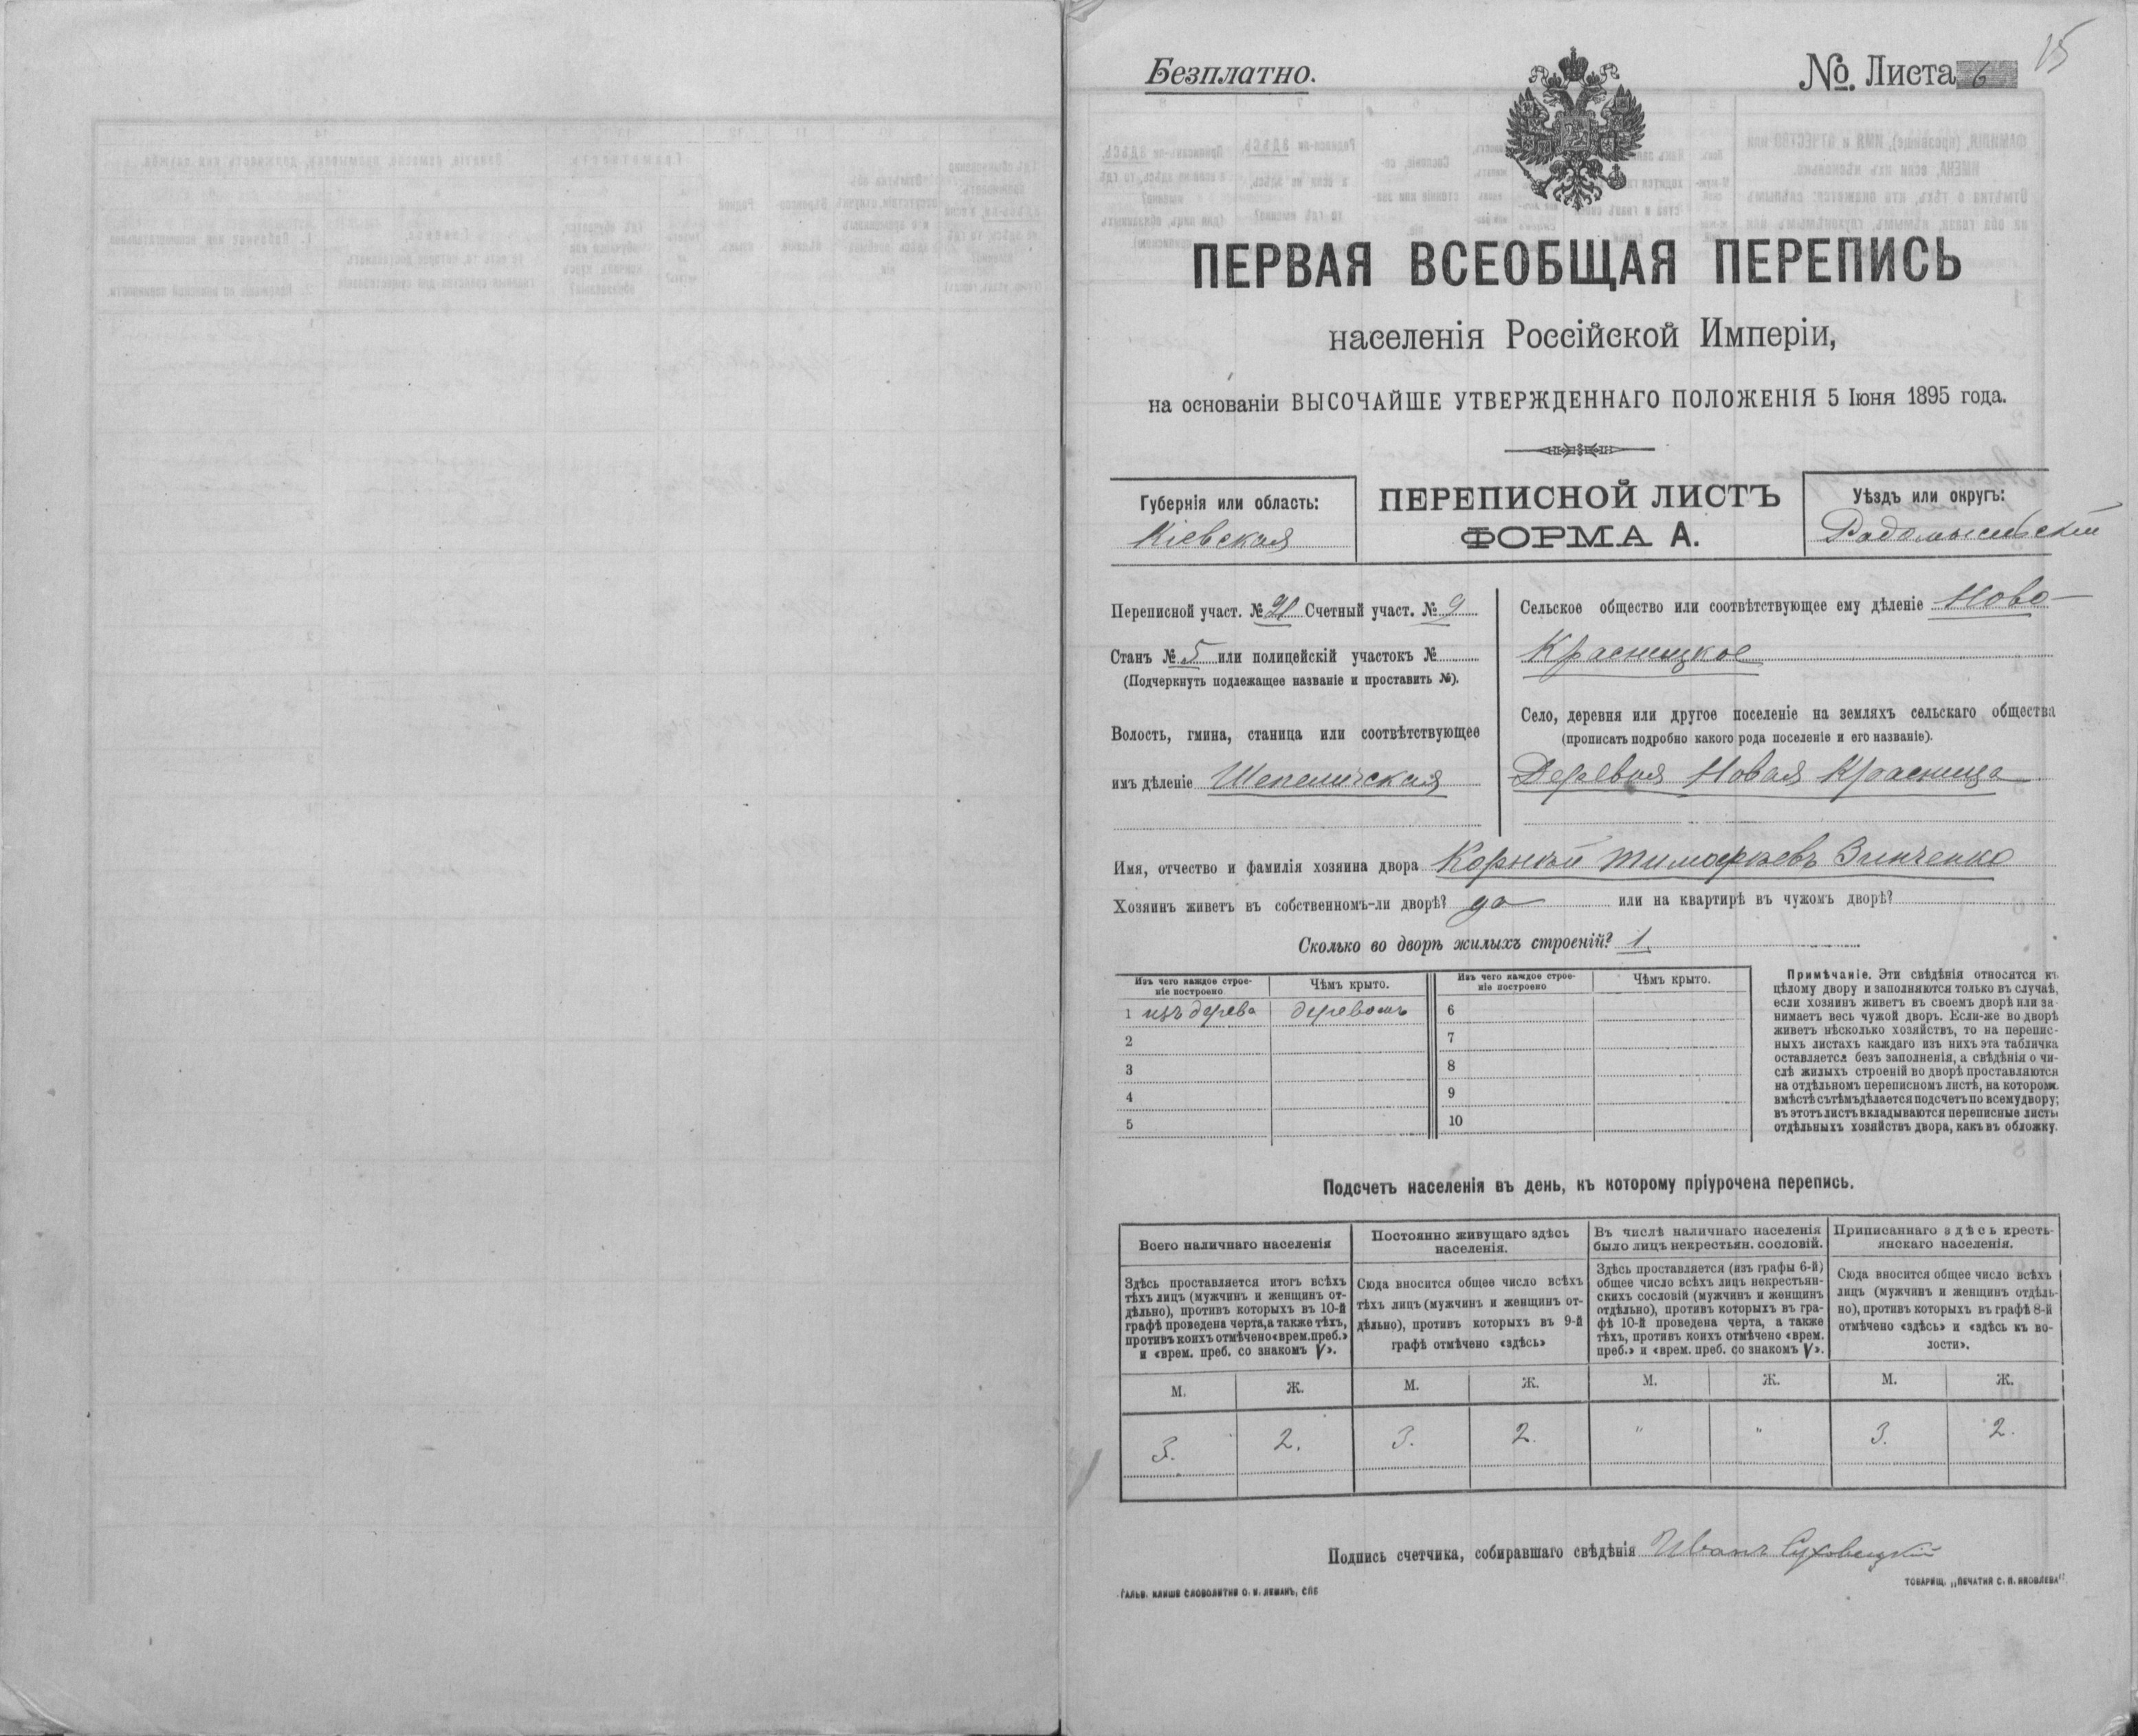 Безплатно.
№. Листа 6
15
ПЕРВАЯ ВСЕОБЩАЯ ПЕРЕПИСЬ
населенія Россійской Имперіи,
на основаніи ВЫСОЧАЙШЕ УТВЕРЖДЕННАГО ПОЛОЖЕНІЯ 5 Іюня 1895 года.
Губернія или область:
Кіевская
ПЕРЕПИСНОЙ ЛИСТЪ
ФОРМА А.
Уѣздъ или округъ:
Радомысльскій
Переписной участ. № 21 Счетный участ. № 9
Станъ № 5 или полицейскій участокъ №
(Подчеркнуть подлежащее названіе и проставить №).
Волость, гмина, станица или соотвѣтствующее
имъ дѣленіе Шепеличская
Сельское общество или соотвѣтствующее ему дѣленіе Ново-
Красницкое
Село, деревня или другое поселеніе на земляхъ сельскаго общества
(прописать подробно какого рода поселеніе и его названіе).
Деревня Новая Красница
Имя, отчество и фамилія хозяина двора Корнѣй Тимофѣевъ Зинченко
Хозяинъ живетъ въ собственномъ-ли дворѣ? да или на квартирѣ въ чужомъ дворѣ?
Сколько во дворѣ жилыхъ строеній? 1.
Изъ чего каждое строе-
ніе построено
Чѣмъ крыто.
Изъ чего каждое строе-
ніе построено
Чѣмъ крыто.
1 изъ дерева деревомъ 6
2 7
3 8
4 9
5 10
Примѣчаніе. Эти свѣдѣнія относятся къ
цѣлому двору и заполняются только въ случаѣ,
если хозяинъ живетъ въ своемъ дворѣ или за
нимаетъ весь чужой дворъ. Если-же во дворѣ
живетъ нѣсколько хозяйствъ, то на перепис-
ныхъ листахъ каждаго изъ нихъ эта табличка
оставляется безъ заполненія, а свѣдѣнія о чи-
слѣ жилыхъ строеній во дворѣ проставляются
на отдѣльномъ переписномъ листѣ, на которомъ
вмѣстѣ съ тѣмъ дѣлается подсчетъ по всему двору;
въ этотъ листъ вкладываются переписные листы
отдѣльныхъ хозяйствъ двора, какъ въ обложку.
Подсчетъ населенія въ день, къ которому пріурочена перепись.
Всего наличнаго населенія
Постоянно живущаго здѣсь
населенія.
Въ числѣ наличнаго населенія
было лицъ некрестьян. сословій.
Приписаннаго здѣсь кресть-
янскаго населенія.
Здѣсь проставляется итогъ всѣхъ
тѣхъ лицъ (мужчинъ и женщинъ от-
дѣльно), противъ которыхъ въ 10-й
графѣ проведена черта, а также тѣхъ,
противъ коихъ отмѣчено «врем. преб.»
и «врем. преб. со знакомъ V».
Сюда вносится общее число всѣхъ
тѣхъ лицъ (мужчинъ и женщинъ от-
дѣльно), противъ которыхъ въ 9-й
графѣ отмѣчено «здѣсь»
Здѣсь проставляется (изъ графы 6-й)
общее число всѣхъ лицъ некрестьян-
скихъ сословій (мужчинъ и женщинъ
отдѣльно), противъ которыхъ въ гра-
фѣ 10-й проведена черта, а также
тѣхъ, противъ коихъ отмѣчено «врем.
преб.» и «врем. преб. со знакомъ V».
Сюда вносится общее число всѣхъ
лицъ (мужчинъ и женщинъ отдѣль-
но), противъ которыхъ въ графѣ 8-й
отмѣчено «здѣсь» и «здѣсь къ во-
лости».
М. Ж. М. Ж. М. Ж. М. Ж.
3. 2. 3. 2. " " 3. 2.
Подпись счетчика, собиравшаго свѣдѣнія Иванъ Суховецкій
ГАЛЬВ. КЛИШЕ СЛОВОЛИТНИ О. И. ЛЕМАНЪ, СПБ
ТОВАРИЩ. „ПЕЧАТНЯ С. П. ЯКОВЛЕВА“.